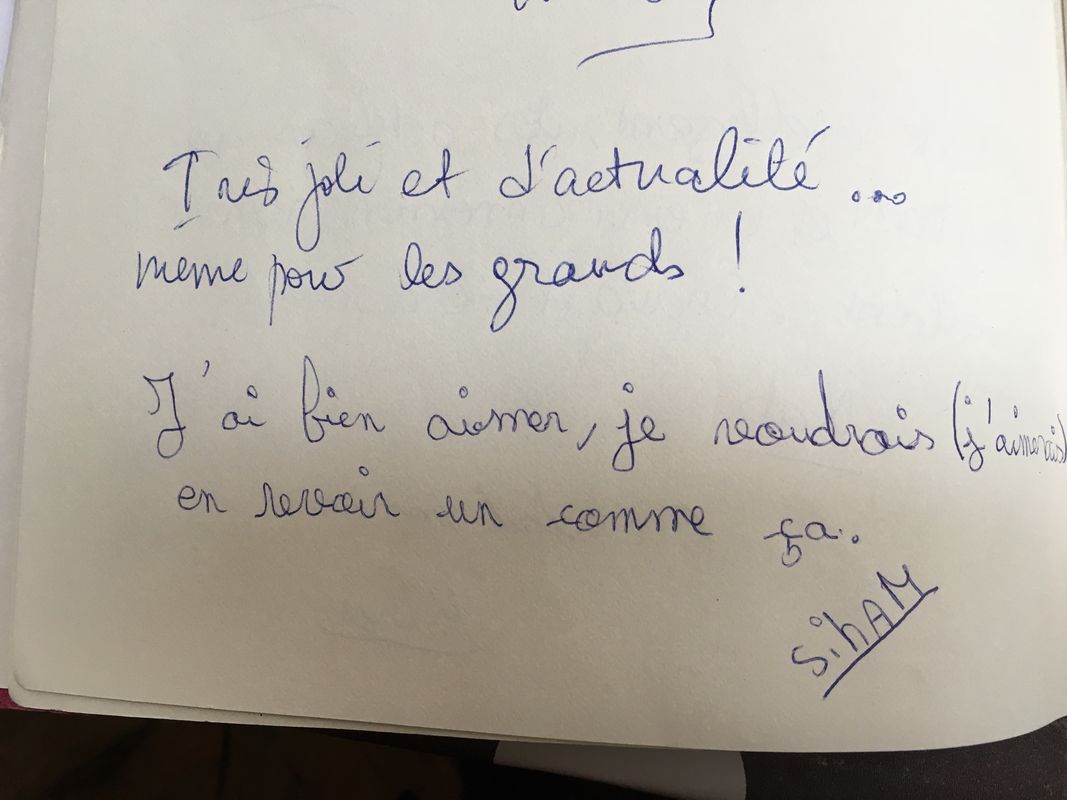 Très joli et d'actualité ...
même pour les grands !
J'ai bien aimer, je voudrais (j'aimerais)
en revoir un comme ça.
SihAM